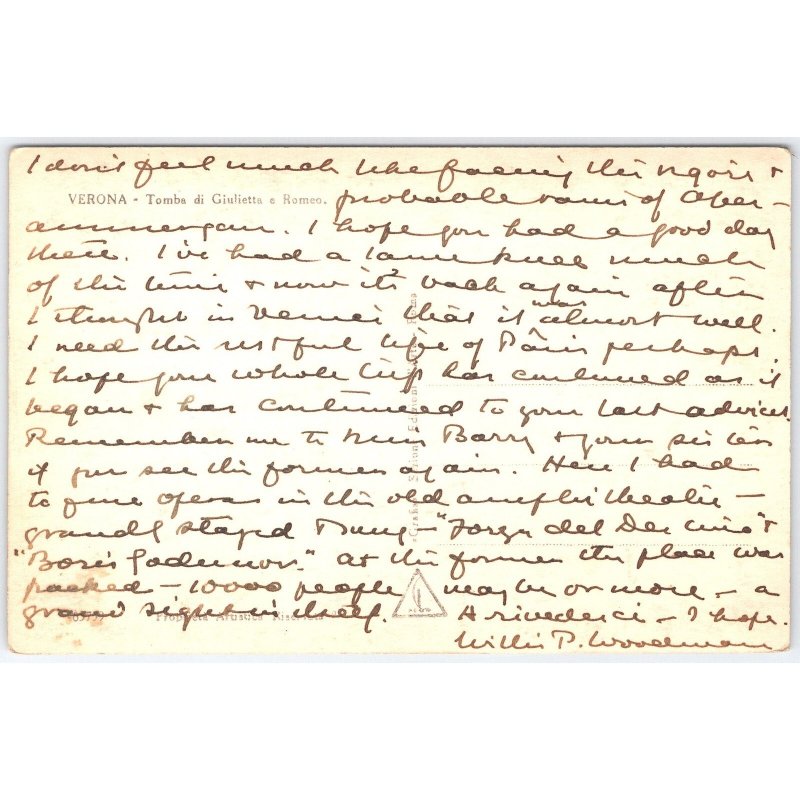 I don't feel much like facing the rigors &
VERONA - Tomba di Giulietta e Romeo.
probable rains of Ober-
ammergau. I hope you had a good day
there. I've had a lame knee much
of the time & now it's back again after
I thought in Venice that it was almost well.
I need the restful life of Paris perhaps.
I hope your whole trip has continued as it
began & has continued to your last advices.
Remember me to Barry & your sister
if you see the former again. Here I had
to fine operas in the old amphitheatre -
grandly staged & sung - "Forza del Destino" &
"Boris Godunov." At the former the place was
packed - 10000 people maybe or more - a
grand sight in itself. Arivederci - I hope.
Proprietà Artistica Riservata
Willis P. Woodman